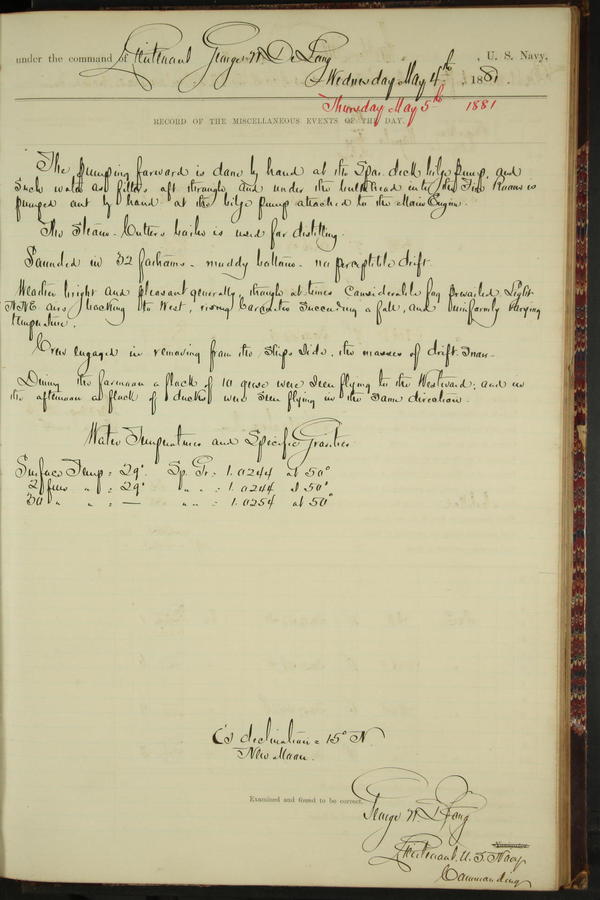 under the command of Lieutenant George W. De Long, U. S. Navy,
Wednesday May 4th, 1881.
Thursday May 5th 1881
RECORD OF THE MISCELLANEOUS EVENTS OF THE DAY.
The pumping forward is done by hand at the Spar deck bilge pump, and
such water as filters aft through and under the bulkhead into the Fire Room is
pumped out by hand at the bilge pump attached to the Main Engine.
The Steam Cutter's boiler is used for distilling.
Sounded in 32 fathoms - muddy bottom - no perceptible drift.
Weather bright and pleasant generally, though at times considerable fog prevailed. Light
NNE airs backing to West, rising barometer succeeding a fall, and uniformly varying
temperature.
Crew engaged in removing from the ship's side, the masses of drift snow -
During the forenoon a flock of 10 geese were seen flying to the Westward; and in
the afternoon a flock of ducks were seen flying in the same direction.
Water Temperatures and Specific Gravities
Surface Temp = 29°. Sp. Gr. = 1.0244 at 50°
2 fms " = 29° " " = 1.0244 at 50°
30 " " = — " " = 1.0254 at 50°
☾'s declination = 15° N.
New Moon.
Examined and found to be correct.
George W. De Long
Navigator
Lieutenant, U. S. Navy
Commanding